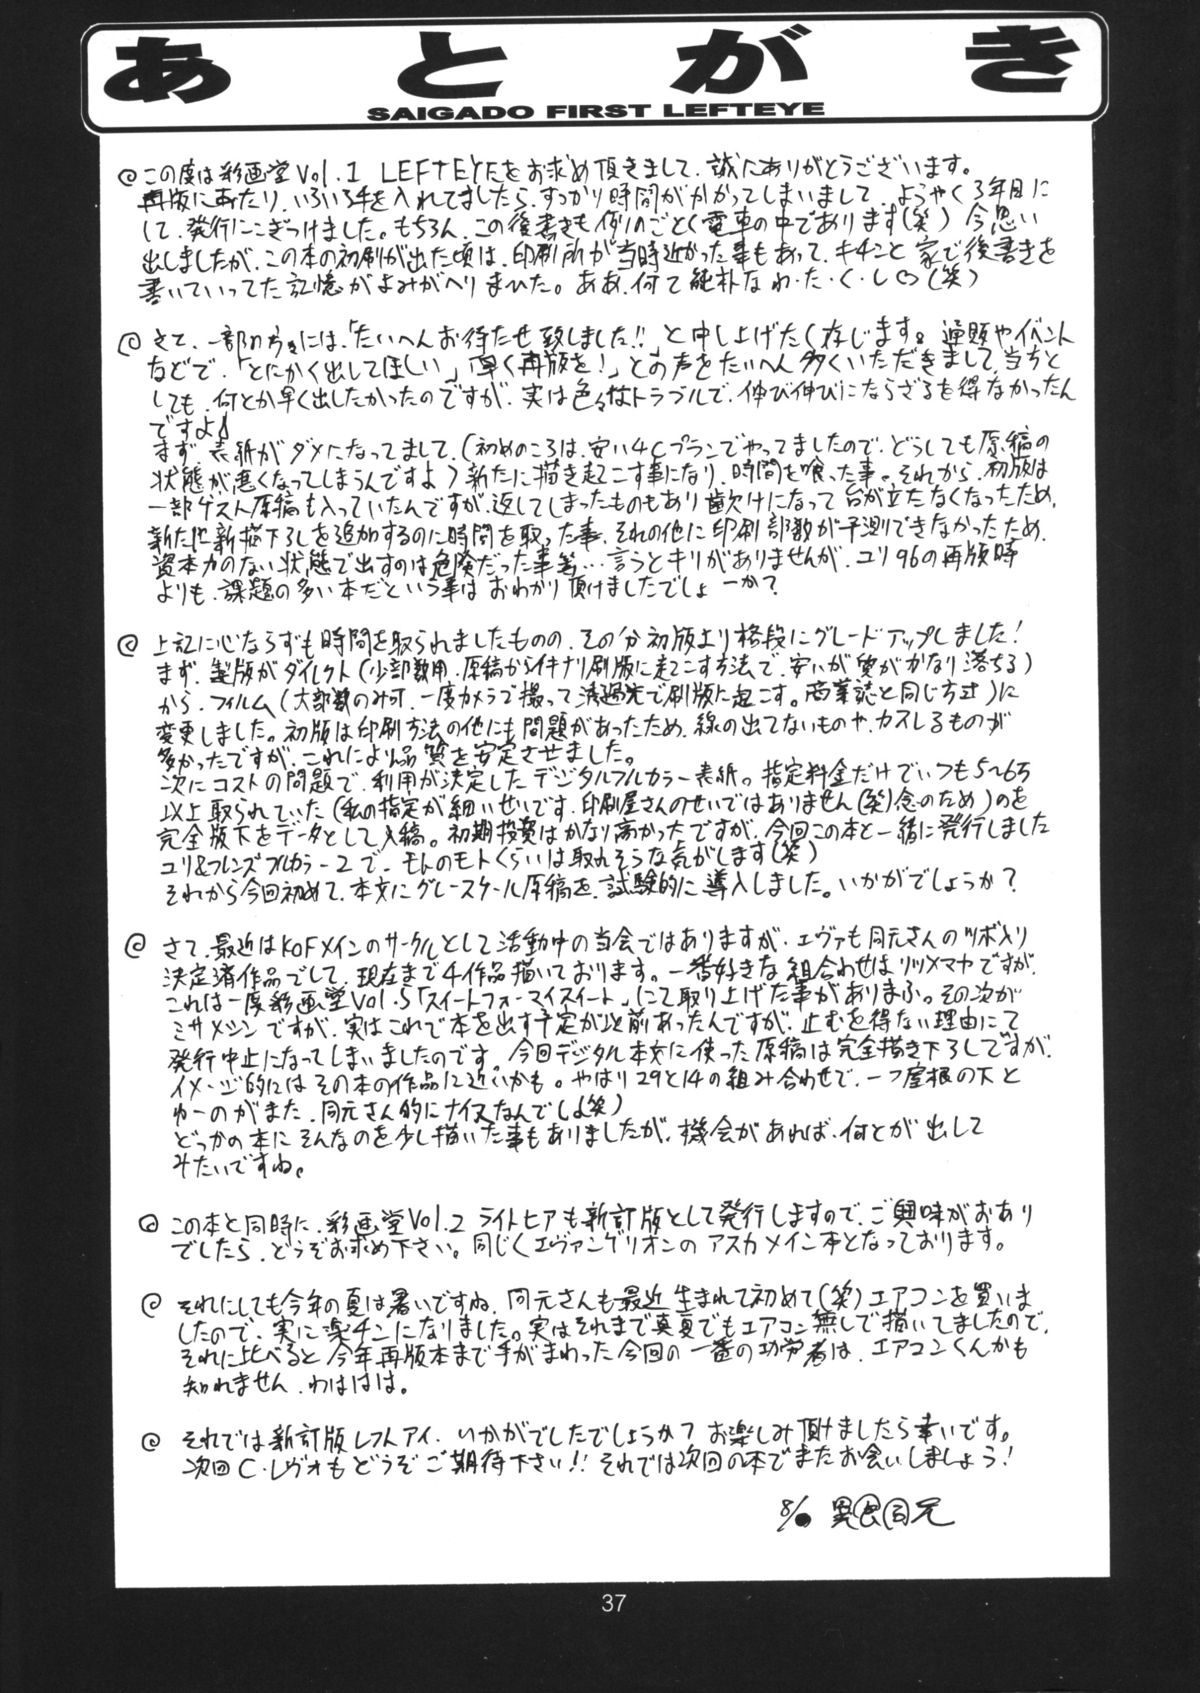 あとがき
SAIGADO FIRST LEFTEYE
この度は彩画堂Vol.1 LEFTEYEをお求め頂きまして、誠にありがとうございます。
再版にあたり、いろいろ手を入れてましたら、すっかり時間がかかってしまいまして、ようやく3年目に
して、発行にこぎつけました。もちろん、この後書きも例のごとく電車の中であります(笑) 今思い
出しましたが、この本の初刷が出た頃は、印刷所が当時近かった事もあって、キチンと家で後書きを
書いていってた記憶がよみがへりまひた。ああ、何て純朴なわ・た・く・し♡(笑)
さて、一部の方々には、「たいへんお待たせ致しました!!」と申し上げたく存じます。通販やイベント
などで、「とにかく出してほしい」「早く再版を!」との声をたいへん多くいただきまして、当方と
しても、何とか早く出したかったのですが、実は色々なトラブルで、伸び伸びにならざるを得なかったん
ですよ
まず、表紙がダメになってまして、(初めのころは、安い4Cプランでやってましたので、どうしても原稿の
状態が悪くなってしまうんですよ)新たに描き起こす事になり、時間を喰った事。それから、初版は
一部ゲスト原稿も入っていたんですが、返してしまったものもあり歯欠けになって台が立たなくなったため、
新たに新描下ろしを追加するのに時間を取った事、その他に印刷部数が予測できなかったため、
資本力のない状態で出すのは危険だった事等…言うとキリがありませんが、ユリ96の再版時
よりも、課題の多い本だという事はおわかり頂けましたでしょーか?
上記に心ならずも時間を取られましたものの、その分初版より格段にグレードアップしました!
まず、製版がダイレクト(少部数用、原稿からイキナリ刷版に起こす方法で、安いが質がかなり落ちる)
から、フィルム(大部数のみ可、一度カメラで撮って透過光で刷版に起こす。商業誌と同じ方法)に
変更しました。初版は印刷方法の他にも問題があったため、線の出てないものや、カスレるものが
多かったですが、これにより品質を安定させました。
次にコストの問題で、利用が決定したデジタルフルカラー表紙。指定料金だけでいつも5〜6万
以上取られていた(私の指定が細いせいです、印刷屋さんのせいではありません(笑)念のため)のを
完全版下をデータとして入稿。初期投資はかなり高かったですが、今回この本と一緒に発行しました
ユリ&フレンズフルカラー2で、モトのモトくらいは取れそうな気がします(笑)
それから今回初めて、本文にグレースケール原稿を、試験的に導入しました。いかがでしょうか?
さて、最近はKOFメインのサークルとして活動中の当会ではありますが、エヴァも同元さんのツボ入り
決定済作品でして、現在まで4作品描いております。一番好きな組合わせはリツ×マヤですが、
これは一度彩画堂Vol.5「スイートフォーマイスイート」にて取り上げた事がありまふ。その次が
ミサ×シンですが、実はこれで本を出す予定が以前あったんですが、止むを得ない理由にて
発行中止になってしまいましたのです。今回デジタル本文に使った原稿は完全描き下ろしですが、
イメージ的にはその本の作品に近いかも。やはり29と14の組み合わせで、一つ屋根の下と
ゆーのがまた、同元さん的にナイスなんでしょ(笑)
どっかの本にそんなのを少し描いた事もありましたが、機会があれば、何とか出して
みたいですね。
この本と同時に、彩画堂Vol.2 ライトヒアも新訂版として発行しますので、ご興味がおあり
でしたら、どうぞお求め下さい。同じくエヴァンゲリオンのアスカメイン本となっております。
それにしても今年の夏は暑いですね、同元さんも最近生まれて初めて(笑)エアコンを買いま
したので、実に楽チンになりました。実はそれまで真夏でもエアコン無しで描いてましたので、
それに比べると今年再版本まで手がまわった今回の一番の功労者は、エアコンくんかも
知れません、わははは。
それでは新訂版レフトアイ、いかがでしたでしょうか? お楽しみ頂けましたら幸いです。
次回C・レヴォもどうぞご期待下さい!! それでは次回の本でまたお会いしましょう!
37